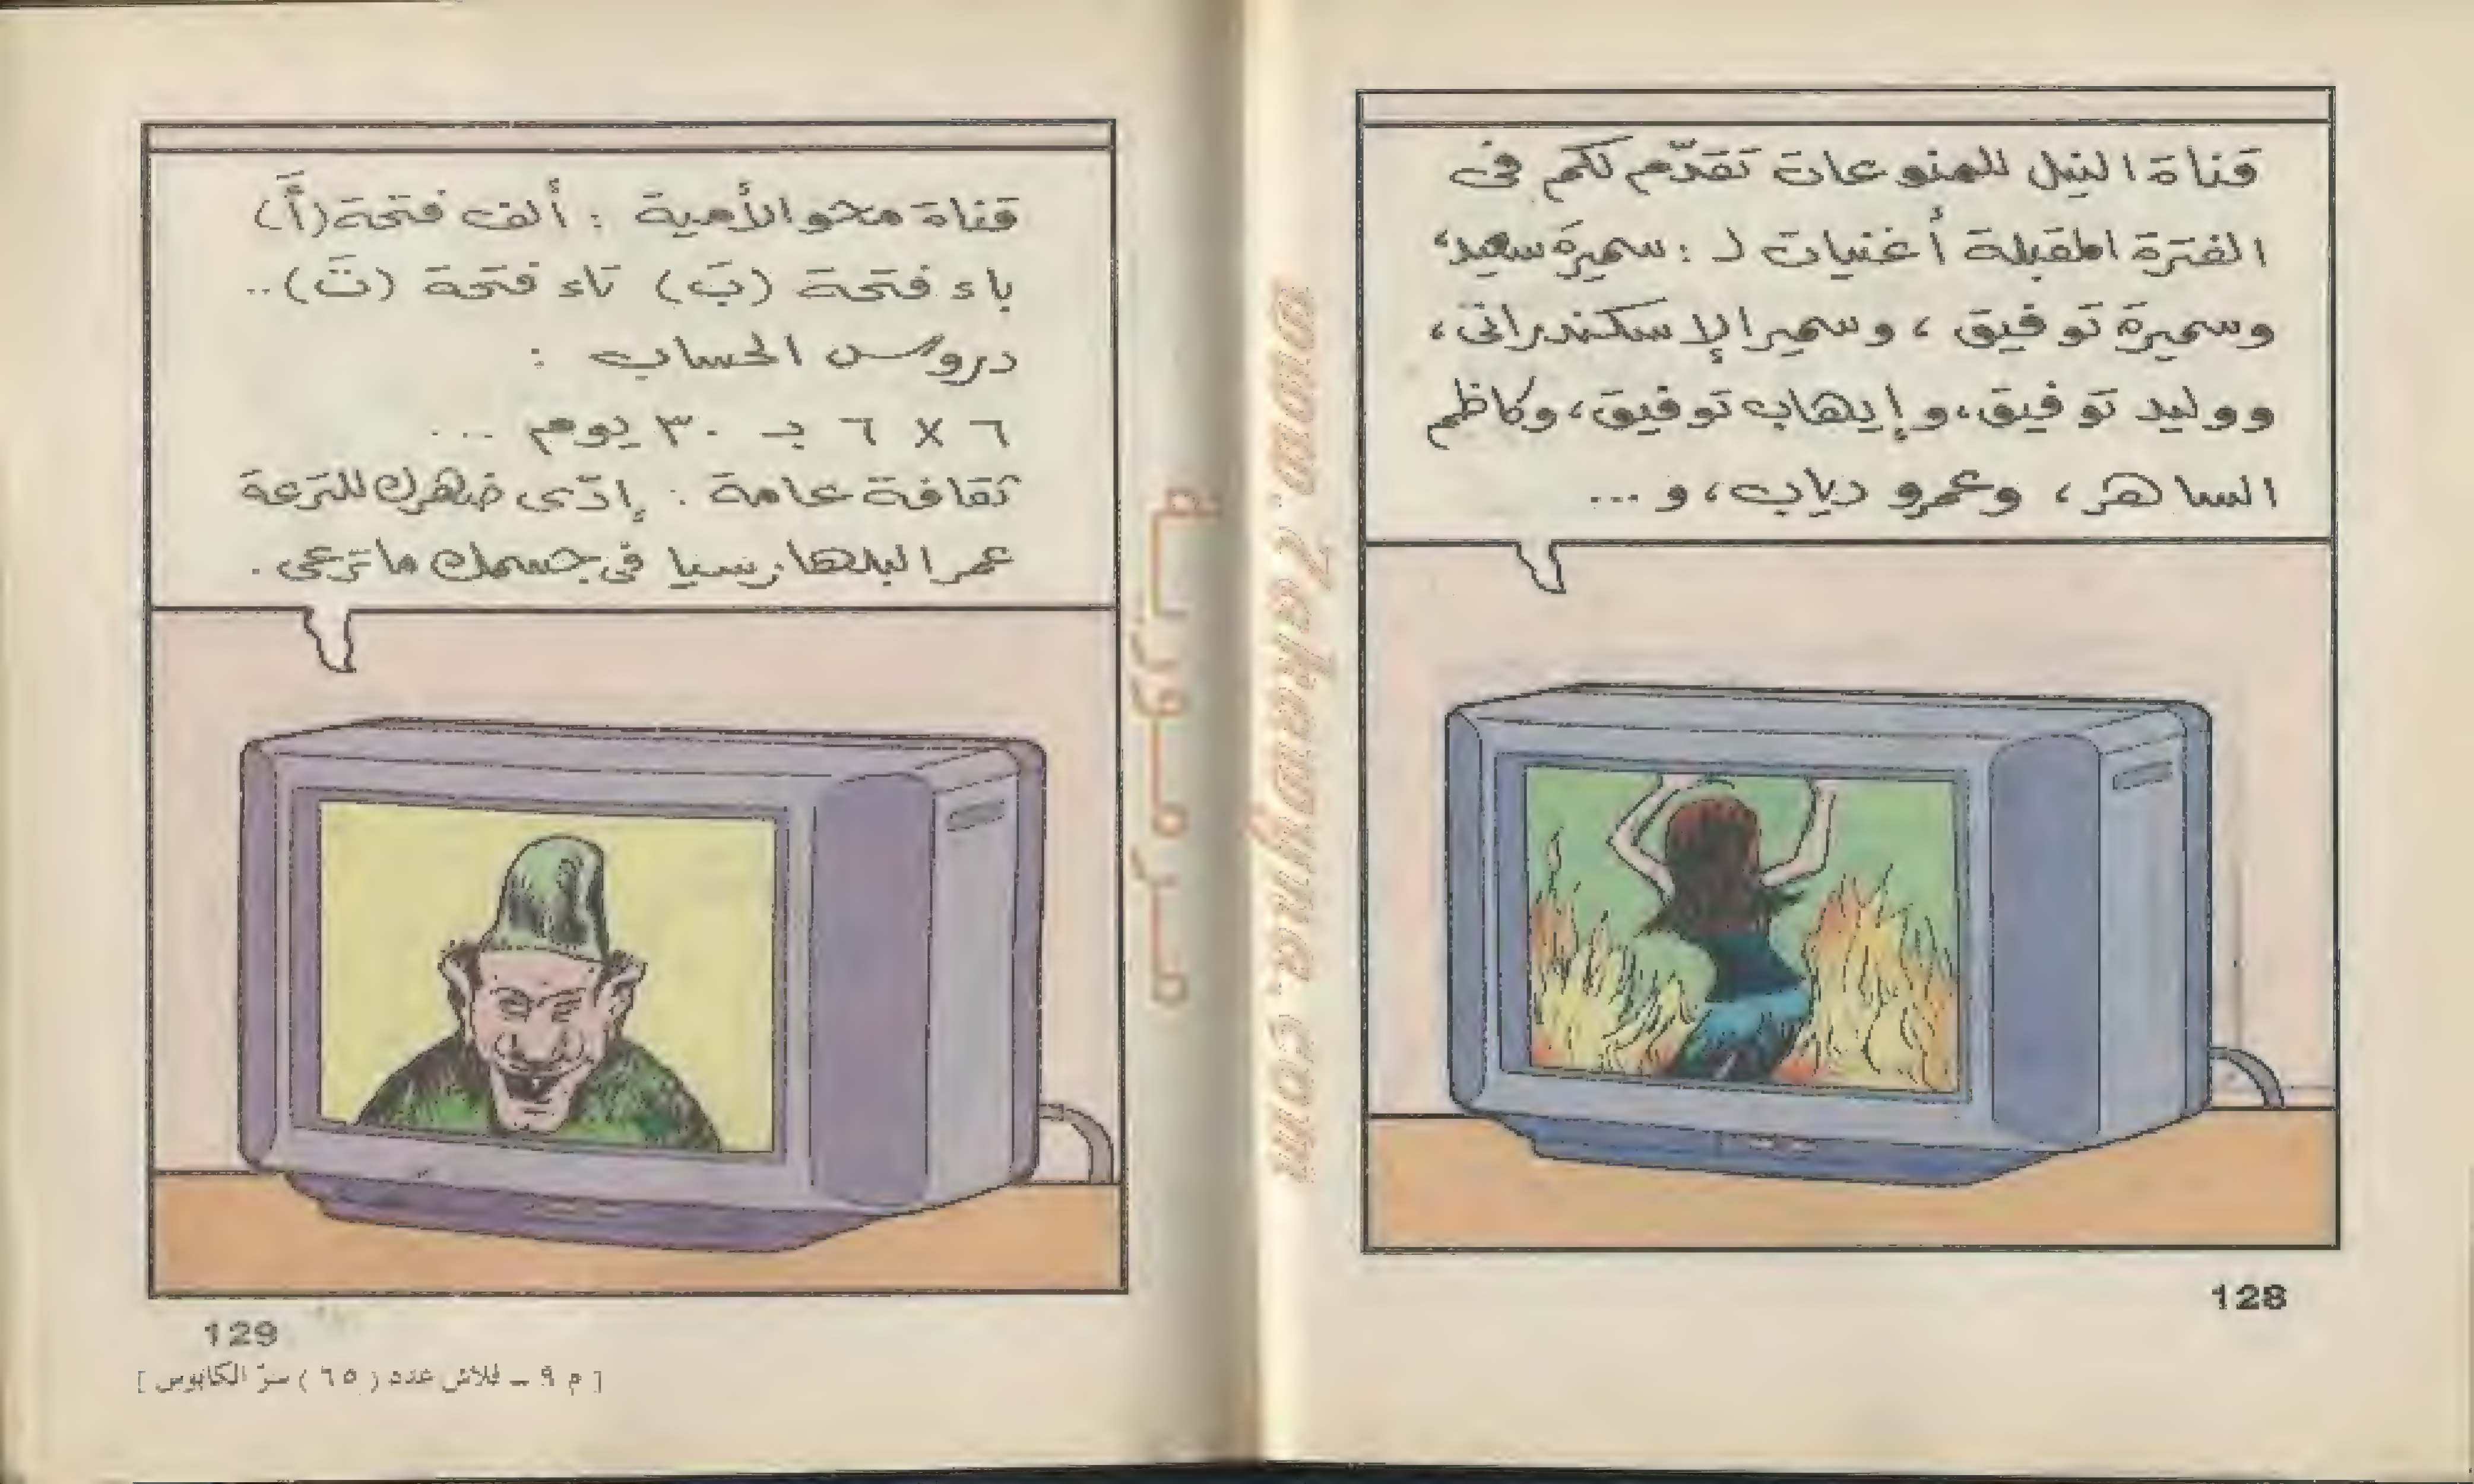 قناة النيل للمنوعات تقدّم لكم فى
الفترة المقبلة أغنيات لـ : سميرة سعيد،
وسميرة توفيق ، وسمير الإسكندرانى ،
ووليد توفيق، وإيهاب توفيق، وكاظم
الساهر ، وعمرو دياب، و ...
128
www.Zakawyna.com
مرمورية
قناة محو الأمية : ألف فتحة (أَ)
باء فتحة (بَ) تاء فتحة (تَ) ..
دروس الحساب :
٦ X ٦ بـ ٣٠ يوم ...
ثقافة عامة : إدّى ضهرك للترعة
عمر البلهارسيا فى جسمك ما ترعى .
129
[ م ٩ ـ فلاش عدد ( ٦٥ ) سرّ الكابوس ]